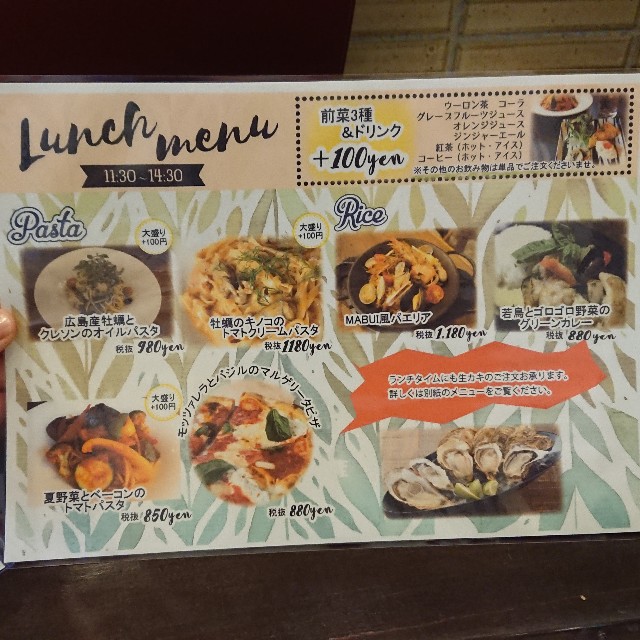 Lunch menu
11:30~14:30
前菜3種
&ドリンク
+100yen
ウーロン茶 コーラ
グレープフルーツジュース
オレンジジュース
ジンジャーエール
紅茶(ホット・アイス)
コーヒー(ホット・アイス)
※その他のお飲み物は単品でご注文くださいませ。
Pasta
大盛り
+100円
広島産牡蠣と
クレソンのオイルパスタ
税抜 980yen
大盛り
+100円
牡蠣のキノコの
トマトクリームパスタ
税抜 1180yen
Rice
MABUI風パエリア
税抜 1.180yen
若鳥とゴロゴロ野菜の
グリーンカレー
税抜 880yen
大盛り
+100円
夏野菜とベーコンの
トマトパスタ
税抜 850yen
モッツァレラとバジルのマルゲリータピザ
税抜 880yen
ランチタイムにも生カキのご注文お承ります。
詳しくは別紙のメニューをご覧ください。